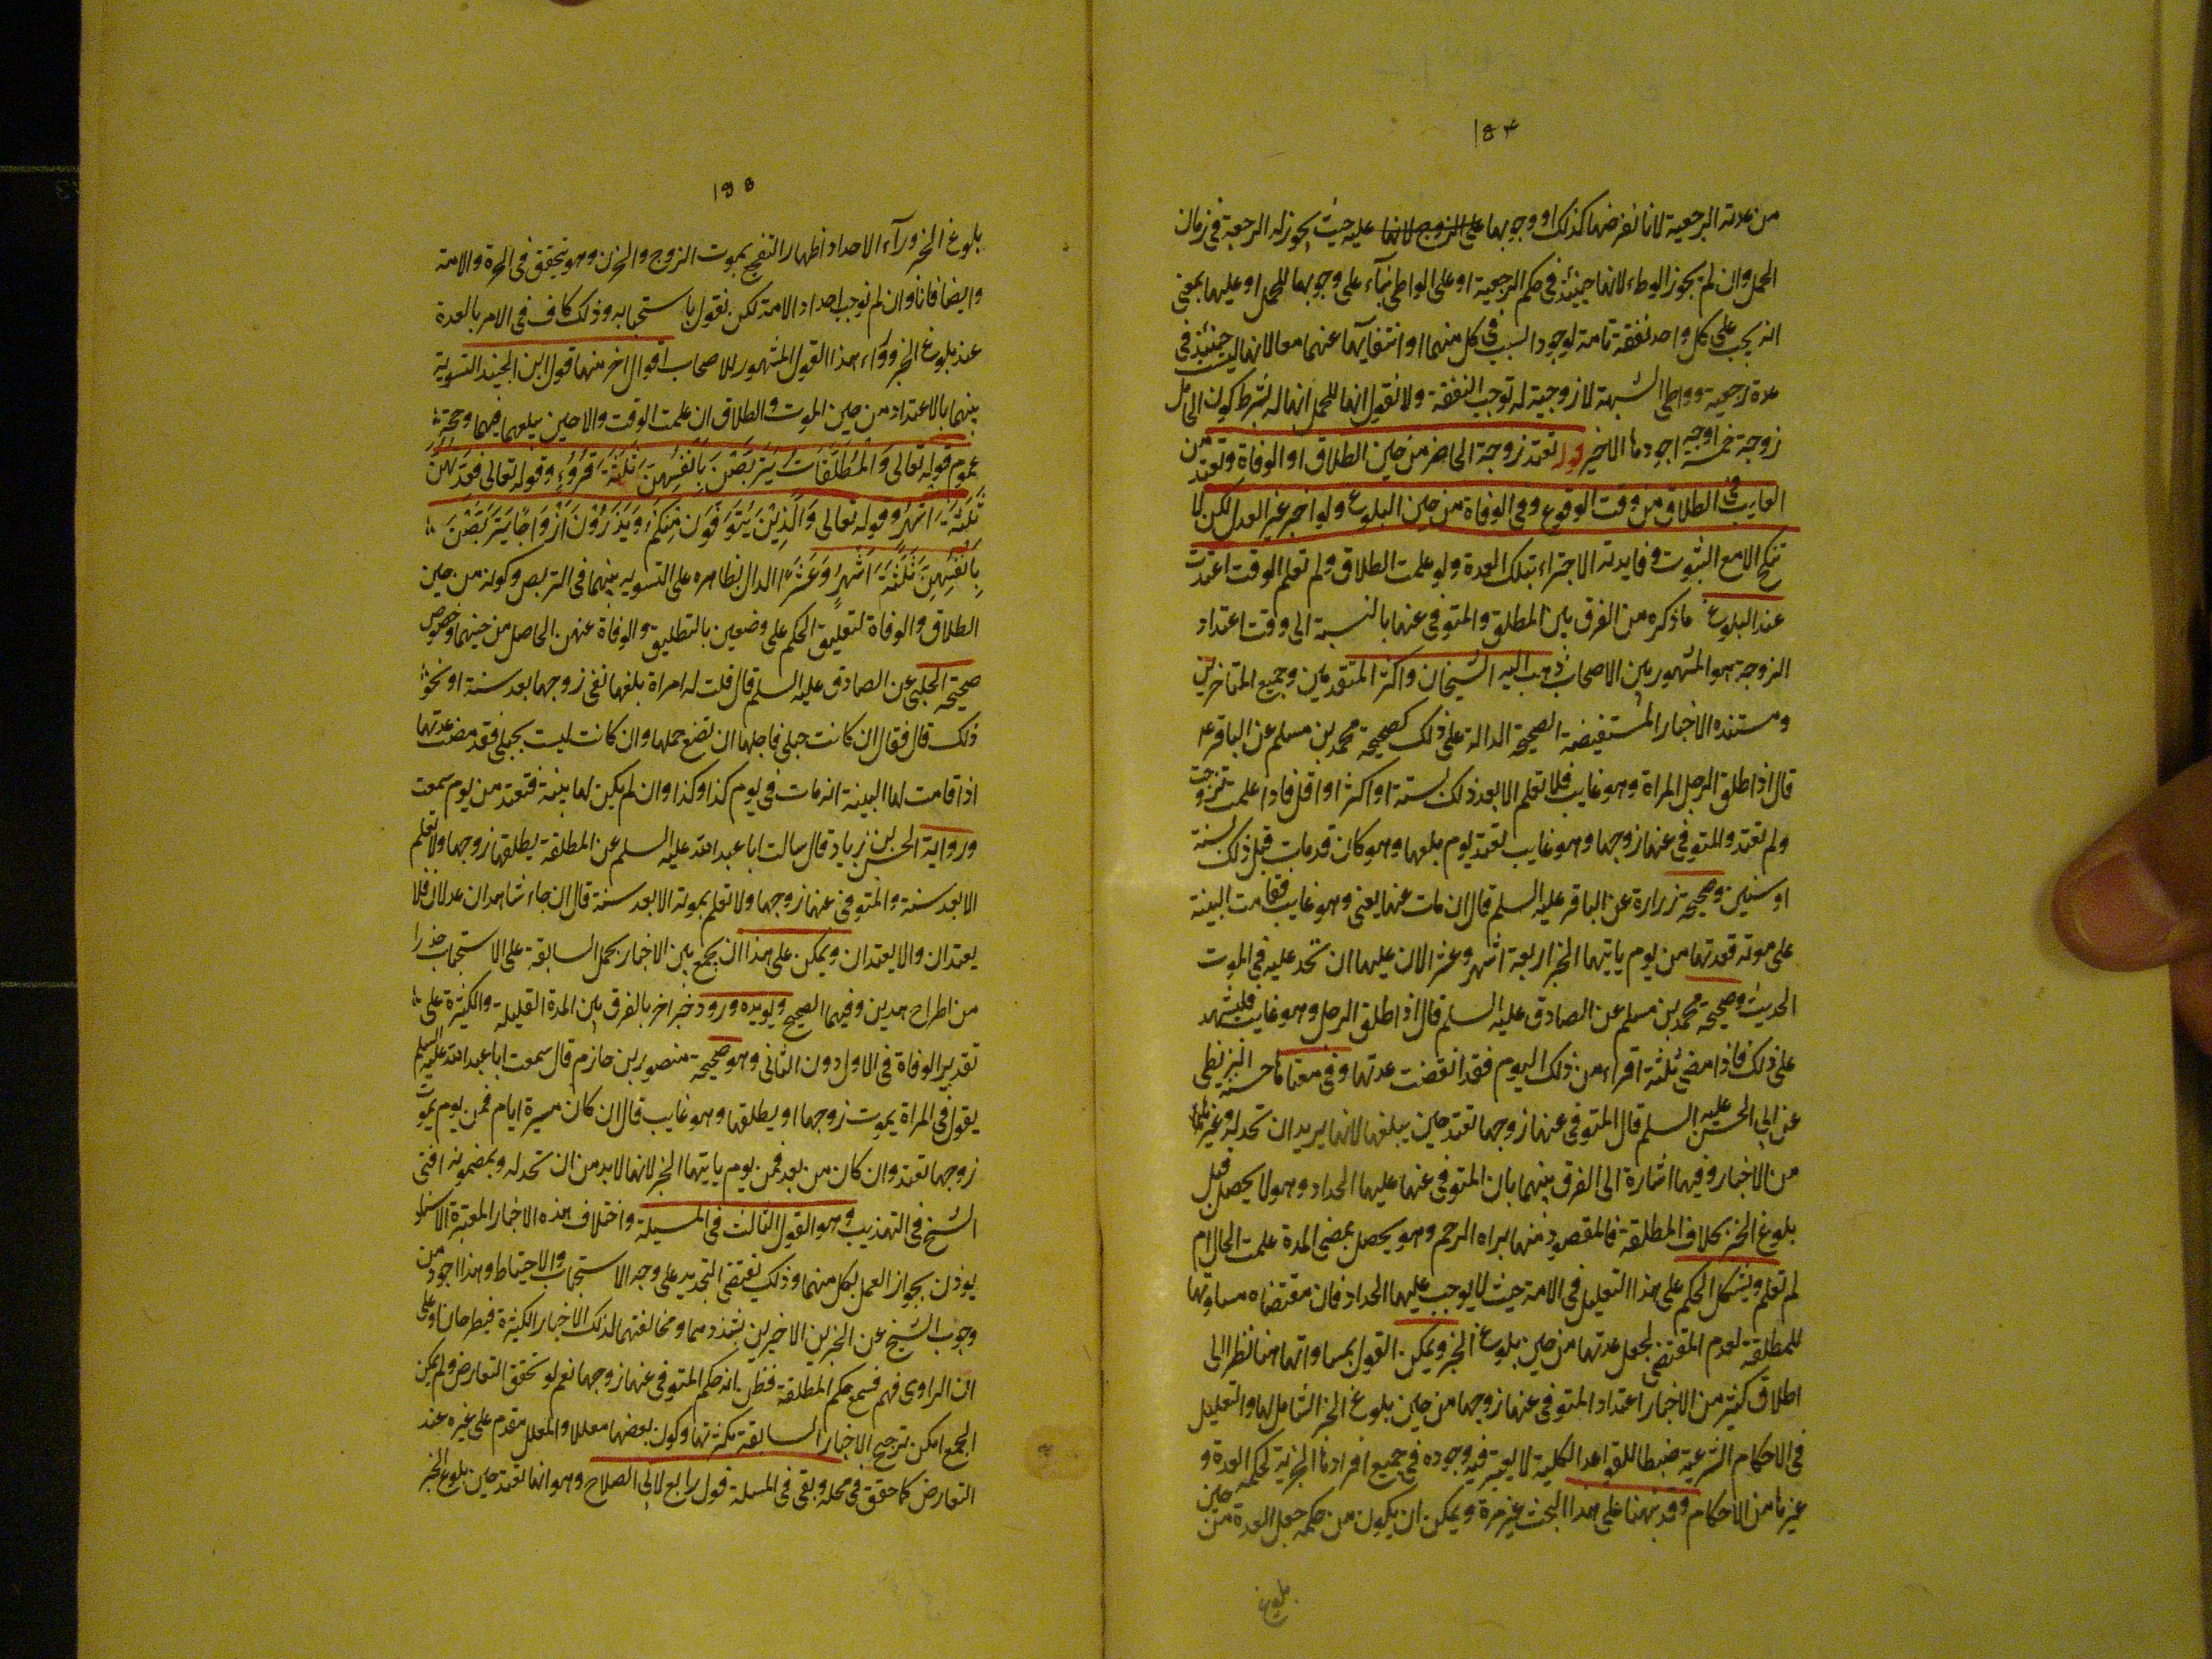 ١٥٤
من عدته الرجعية لانا نفرضها كذلك او وجوبها على الزوج لانها عليه حيث يجوز له الرجعة في زمان
الحمل وان لم يجوز الوطء لانها حينئذ في حكم الرجعية او على الواطي بناء على وجوبها للحمل او عليهما بمعنى
انه يجب على كل واحد نفقة تامة لوجود السبب في كل منهما او انتفايها عنهما معا لانها ليست حينئذ في
عدة رجعية وواطي الشبهة لا زوجية له توجب النفقة ولا نقول انها للحمل انها له بشرط كون الحامل
زوجة خمسة اوجه اجودها الاخير قوله تعتد زوجة الحاضر من حين الطلاق او الوفاة وتعتد من
الغايب في الطلاق من وقت الوقوع وفي الوفاة من حين البلوغ ولو اخبر غير العدل لكن لا
تنكح الا مع الثبوت وفايدته الاجتزاء بتلك العدة ولو علمت الطلاق ولم تعلم الوقت اعتدت
عند البلوغ ما ذكره من الفرق بين المطلق والمتوفى عنها بالنسبة الى وقت اعتداد
الزوجة هو المشهور بين الاصحاب ذهب اليه الشيخان واكثر المتقدمين وجميع المتاخرين
ومستنده الاخبار المستفيضة الصحيحة الدالة على ذلك كصحيحة محمد بن مسلم عن الباقر ع
قال اذا طلق الرجل المراة وهو غايب فلا تعلم الا بعد ذلك بسنة او اكثر او اقل فاذا علمت تزوجت
ولم تعتد والمتوفى عنها زوجها وهو غايب تعتد يوم بلغها وهو كان قد مات قبل ذلك بسنة
او سنين وصحيحة زرارة عن الباقر عليه السلم قال ان مات عنها يعني وهو غايب فقامت البينة
على موته فعدتها من يوم ياتيها الخبر اربعة اشهر وعشرا لان عليها ان تحد عليه في الموت
الحديث وصحيحة محمد بن مسلم عن الصادق عليه السلم قال اذا طلق الرجل وهو غايب فليشهد
على ذلك فاذا مضى ثلثة اقراء من ذلك اليوم فقد انقضت عدتها وفي معناها حسنة البزنطي
عن ابي الحسن عليه السلم قال المتوفى عنها زوجها تعتد حين يبلغها لانها يريد ان تحد له وغيرها
من الاخبار وفيها اشارة الى الفرق بينهما بان المتوفى عنها عليها الحداد وهو لا يحصل قبل
بلوغ الخبر بخلاف المطلقة فالمقصود منها براه الرحم وهو يحصل بمضي المدة علمت الحال ام
لم تعلم ويشكل الحكم على هذا التعليل في الامة حيث لا يوجب عليها الحداد فان مقتضاه مساوتها
للمطلقة لعدم المقتضي لجعل عدتها من حين بلوغ الخبر ويمكن القول بمساواتها هنا نظرا الى
اطلاق كثير من الاخبار اعتداد المتوفى عنها زوجها من حين بلوغ الخبر الشامل لها والتعليل
في الاحكام الشرعية ضبطا للقواعد الكلية لا يعتبر فيه وجوده في جميع افرادها الجزية كحكمة العدة و
غيرها من الاحكام وقد نبهنا على هذا البحث غير مرة ويمكن ان يكون من حكمه جعل العدة من حين
بلوغ
١٥٥
بلوغ الخبر وراء الاحداد اظهار التفجع بموت الزوج والحزن وهو يتحقق في الحرة والامة
وايضا فانا وان لم نوجب احداد الامة لكن نقول باستحبابه وذلك كاف في الامر بالعدة
عند بلوغ الخبر ووراء هذا القول المشهور للاصحاب اقوال اخر منها قول ابن الجنيد التسوية
بينهما بالاعتداد من حين الموت والطلاق ان علمت الوقت والا حين يبلغها فيهما وحجته
عموم قوله تعالى وَالْمُطَلَّقَاتُ يَتَرَبَّصْنَ بِاَنْفُسِهِنَّ ثَلٰثَةَ قُرُوءٍ وقوله تعالى فَعِدَّتُهُنَّ
ثَلٰثَةُ اَشْهُرٍ وقوله تعالى وَالَّذِيْنَ يُتَوَفَّوْنَ مِنْكُمْ وَيَذَرُوْنَ اَزْوَاجًا يَتَرَبَّصْنَ
بِاَنْفُسِهِنَّ ثَلٰثَةَ اَشْهُرٍ وَعَشْرًا الدال بظاهره على التسويه بينهما في التربص وكونه من حين
الطلاق والوفاة لتعليق الحكم على وضعين بالتطليق والوفاة عنهن الحاصل من حينهما وخصوص
صحيحة الحلبي عن الصادق عليه السلم قال قلت له امراة بلغها نعي زوجها بعد سنة او نحو
ذلك قال فقال ان كانت حبلى فاجلها ان تضع حملها وان كانت ليست بحبلى فقد مضت عدتها
اذا قامت لها البينة انه مات في يوم كذا وكذا وان لم يكن لها بينة فتعتد من يوم سمعت
ورواية الحسن بن زياد قال سالت ابا عبد الله عليه السلم عن المطلقة يطلقها زوجها ولا تعلم
الا بعد سنة والمتوفى عنها زوجها ولا تعلم بموته الا بعد سنة قال ان جاء شاهدان عدلان فلا
يعتدان والا يعتدان ويمكن على هذا ان يجمع بين الاخبار بحمل السابقة على الاستحباب حذرا
من اطراح هذين وفيهما الصحيح ويويده ورود خبر اخر بالفرق بين المدة القليلة والكثيرة على
تقدير الوفاة في الاول دون الثاني وهو صحيحة منصور بن حازم قال سمعت ابا عبد الله عليه السلم
يقول في المراة يموت زوجها او يطلقها وهو غايب قال ان كان مسيرة ايام فمن يوم يموت
زوجها تعتد وان كان من بعد فمن يوم ياتيها الخبر لانها لا بد من ان تحد له وبمضمونه افتى
الشيخ في التهذيب وهو القول الثالث في المسيلة واختلاف هذه الاخبار المعتبرة الاسناد
يوذن بجواز العمل بكل منهما وذلك يقتضي التجديد على وجه الاستحباب والاحتياط وهذا اجود من
وجوب الشيخ عن الخبرين الاخيرين بشذوذهما ومخالفتهما لذلك الاخبار الكثيرة فيطرحان وعلى
ان الراوى فهم فسمع حكم المطلقة فظن انه حكم المتوفى عنها زوجها نعم لو تحقق التعارض ولم يكن
الجمع امكن ترجيح الاخبار السابقة بكثرتها وكون بعضها معللا والمعلل مقدم على غيره عند
التعارض كما حقق في محله وبقى في المسلة قول رابع لابي الصلاح وهو انها تعتد حين بلوغ الخبر